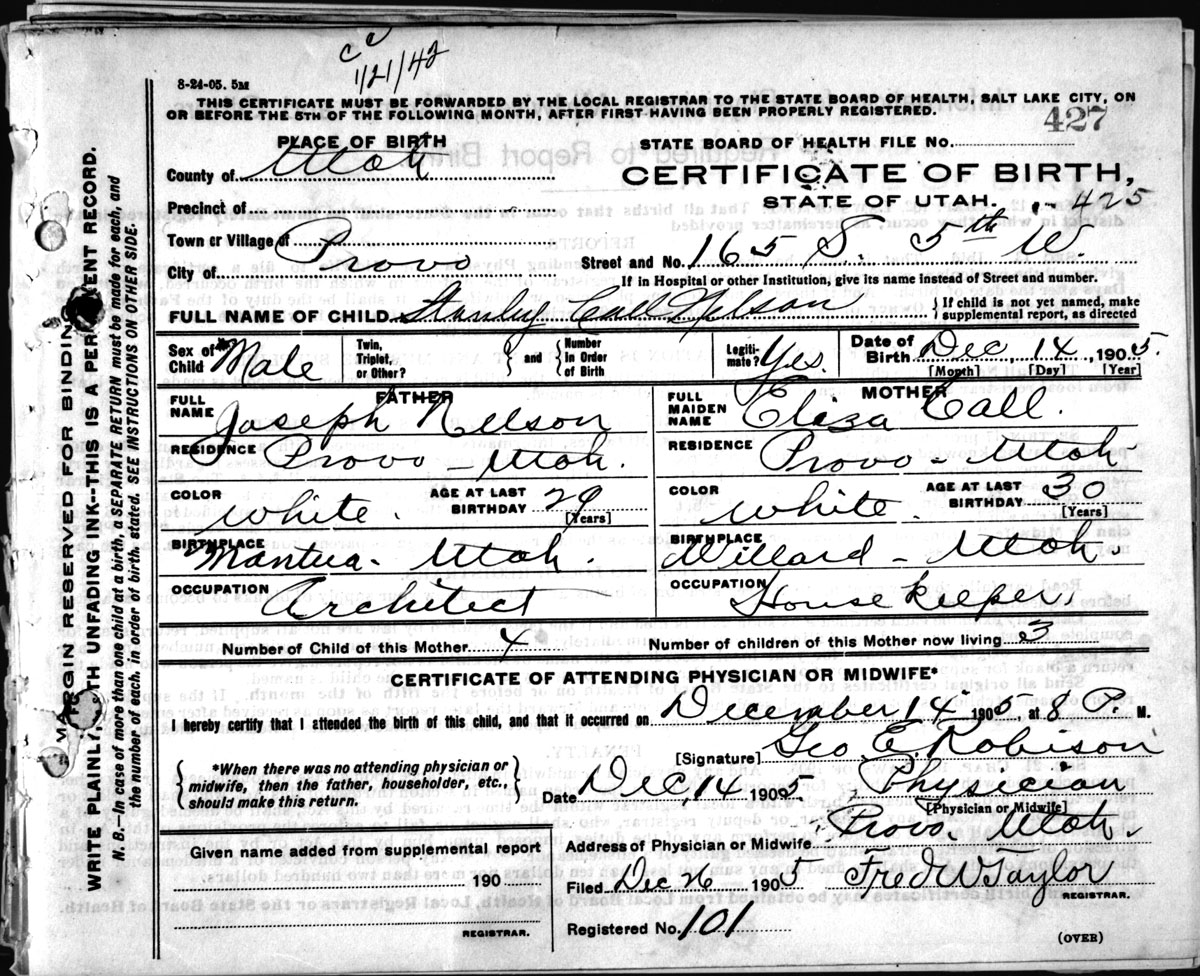 c c
1/21/42
8-24-05. 5M
THIS CERTIFICATE MUST BE FORWARDED BY THE LOCAL REGISTRAR TO THE STATE BOARD OF HEALTH, SALT LAKE CITY, ON
OR BEFORE THE 5TH OF THE FOLLOWING MONTH, AFTER FIRST HAVING BEEN PROPERLY REGISTERED.
427
PLACE OF BIRTH
STATE BOARD OF HEALTH FILE NO.
County of Utah
CERTIFICATE OF BIRTH,
Precinct of
STATE OF UTAH. 425
Town or Village of
City of Provo
Street and No. 165 S. 5th W.
If in Hospital or other Institution, give its name instead of Street and number.
FULL NAME OF CHILD Stanley Call Nelson
} If child is not yet named, make
supplemental report, as directed
Sex of Child Male
Twin, Triplet, or Other? } and { Number in Order of Birth
Legitimate? Yes.
Date of Birth Dec, 14, 1905.
[Month] [Day] [Year]
FATHER
FULL NAME Joseph Nelson
RESIDENCE Provo - Utah.
COLOR White.
AGE AT LAST BIRTHDAY 29
[Years]
BIRTHPLACE Mantua - Utah.
OCCUPATION Architect
MOTHER
FULL MAIDEN NAME Eliza Call.
RESIDENCE Provo - Utah
COLOR White.
AGE AT LAST BIRTHDAY 30
[Years]
BIRTHPLACE Willard - Utah.
OCCUPATION House keeper,
Number of Child of this Mother 4
Number of children of this Mother now living 3
CERTIFICATE OF ATTENDING PHYSICIAN OR MIDWIFE*
I hereby certify that I attended the birth of this child, and that it occurred on December 14 1905, at 8 P. M.
[Signature] Geo E. Robison
{ *When there was no attending physician or
midwife, then the father, householder, etc.,
should make this return. }
Date Dec 14 1905, Physician
[Physician or Midwife]
Address of Physician or Midwife Provo, Utah.
Given name added from supplemental report
190
REGISTRAR.
Filed Dec 26 1905 Fred W Taylor
REGISTRAR.
Registered No. 101
(OVER)
MARGIN RESERVED FOR BINDING
WRITE PLAINLY, WITH UNFADING INK--THIS IS A PERMANENT RECORD.
N. B.—In case of more than one child at a birth, a SEPARATE RETURN must be made for each, and
the number of each, in order of birth, stated. SEE INSTRUCTIONS ON OTHER SIDE.